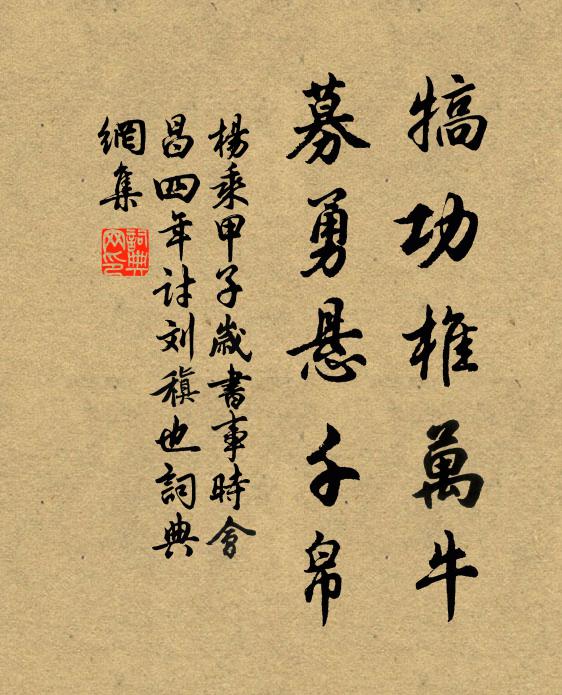 犒功椎萬牛
募勇悬千帛
楊乘甲子歲書事時會
昌四年討刘稹也詞典
網集
詞典
网印